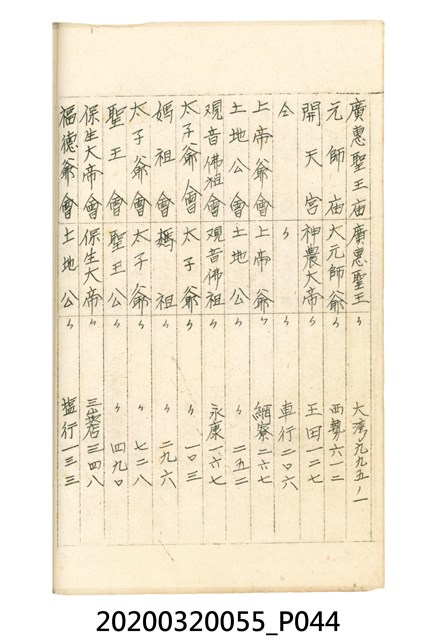 廣惠聖王庙 廣惠聖王 〃 大湾 九九五ノ一
元師庙 大元師爺 〃 西勢 六一二
開天宮 神農大帝 〃 王田 一二七
仝 〃 〃 車行 二0六
上帝爺會 上帝爺 〃 網寮 二六七
土地公會 土地公 〃 〃 二五二
观音佛祖會 观音佛祖 〃 永康 一六七
太子爺會 太子爺 〃 〃 一0三
媽祖會 媽祖 〃 〃 二九六
太子爺會 太子爺 〃 〃 七二八
聖王會 聖王公 〃 〃 四九0
保生大帝會 保生大帝 〃 三崁店 三四八
福德爺會 土地公 〃 塩行 一三三
20200320055_P044